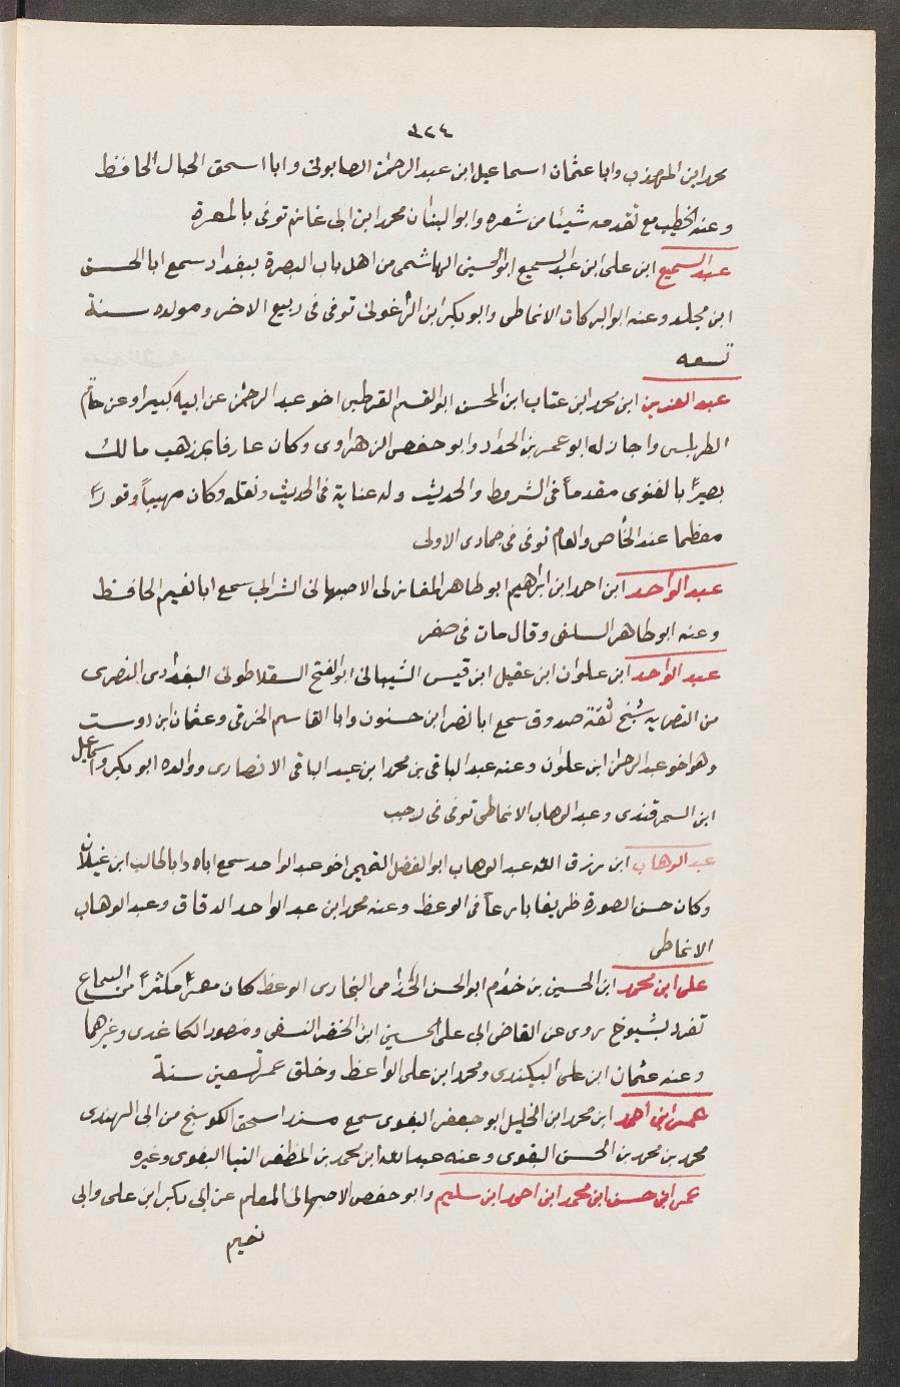 ٦٢٤
محمد ابن المهذب وابا عثمان اسماعيل ابن عبد الرحمن الصابونى وابا اسحق الحبال الحافظ
وعنه الخطيب مع تقدمه شيئا من شعره وابو البنان محمد ابن ابى غانم توفى بالمعرة
عبد السميع ابن على ابن عبد السميع ابو الحسين الهاشمى من اهل باب البصرة ببغداد سمع ابا الحسن
ابن مجلد وعنه ابو البركات الانماطى وابو بكر ابن الزاغونى توفى فى ربيع الاخر ومولده سنة
تسعه
عبد العزيز ابن محمد ابن عتاب ابن المحسن ابو القسم القرطبى اخو عبد الرحمن عن ابيه كبيرا وعن حاتم
الطربلسى واجاز له ابو عمر بن الحداد وابو حفص الزهراوى وكان عارفا بمذهب مالك
بصيرًا بالفتوى مقدماً فى الشروط والحديث وله عناية فى الحديث ونقله وكان مهيباً وقورًا
معظما عند الخاص والعام توفى فى جمادى الاولى
عبد الواحد ابن احمد ابن ابراهيم ابو طاهر المغازلى الاصبهانى الشرابى سمع ابا نعيم الحافظ
وعنه ابو طاهر السلفى وقال مات فى صفر
عبد الواحد ابن علوان ابن عقيل ابن قيس الشيبانى ابو الفتح السقلاطونى البغدادى النصرى
من النصريه شيخ ثقة صدوق سمع ابا نصر ابن حسنون وابا القاسم الخرقى وعثمان ابن دوست
وهو اخو عبد الرحمن ابن علوان وعنه عبد الباقى بن محمد ابن عبد الباقى الانصارى ووالده ابو بكر واسماعيل
ابن السمرقندى وعبد الوهاب الانماطى توفى فى رجب
عبد الوهاب ابن رزق الله عبد الوهاب ابو الفضل التميمى اخو عبد الواحد سمع اباه وابا طالب ابن غيلان
وكان حسن الصورة ظريفا بارعاً فى الوعظ وعنه محمد ابن عبد الواحد الدقاق وعبد الوهاب
الانماطى
على ابن محمد ابن الحسين بن خذام ابو الحسن الخذامى البخارى الوعظ كان معمرًا مكثرًا من السماع
تفرد بشيوخ روى عن القاضى ابى على الحسين ابن الخضر النسفى ومنصور الكاغدى وغيرهما
وعنه عثمان ابن على البيكندى ومحمد ابن على الواعظ وخلق عمر تسعين سنة
عمر ابن احمد ابن محمد ابن الخليل ابو جعفر البغوى سمع مسند اسحق الكوسنج من ابى الهندى
محمد بن محمد بن الحسن البغوى وعنه عبد الله ابن محمد بن المظفر البنا البغوى وغيره
عمر ابن حسن ابن محمد ابن احمد ابن سليم وابو حفص الاصبهانى المعلم عن ابى بكر ابن على وابى
نعيم